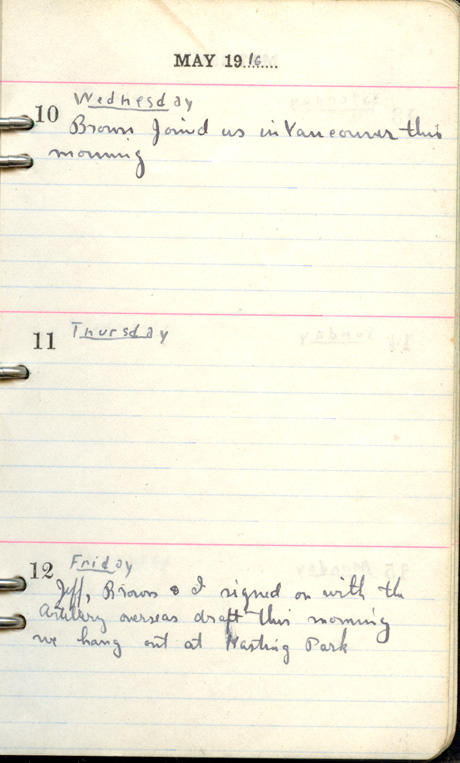 MAY 1916
10 Wednesday
Brown Joind us in Vancouver this
morning
11 Thursday
12 Friday
Jeff, Brown & I signed on with the
Artillery overseas draft this morning
we hang out at Hasting Park